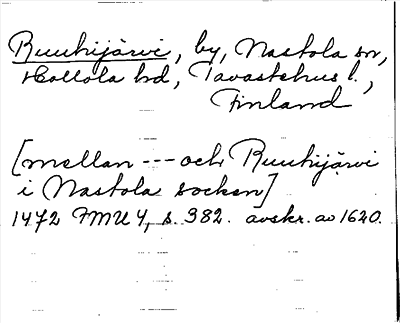 Ruuhijärvi, by, Nastola sn,
Hollola hd, Tavastehus l.,
Finland
[mellan --- och Ruuhijärvi
i Nastola socken]
1472 FMU 4, s. 382. avskr. av 1620.